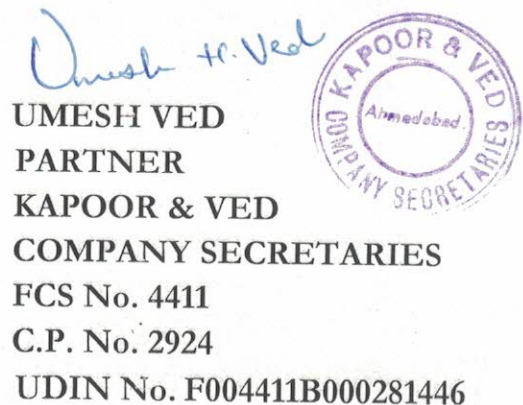 Umesh H. Ved
KAPOOR & VED
Ahmedabad.
COMPANY SECRETARIES
UMESH VED
PARTNER
KAPOOR & VED
COMPANY SECRETARIES
FCS No. 4411
C.P. No. 2924
UDIN No. F004411B000281446